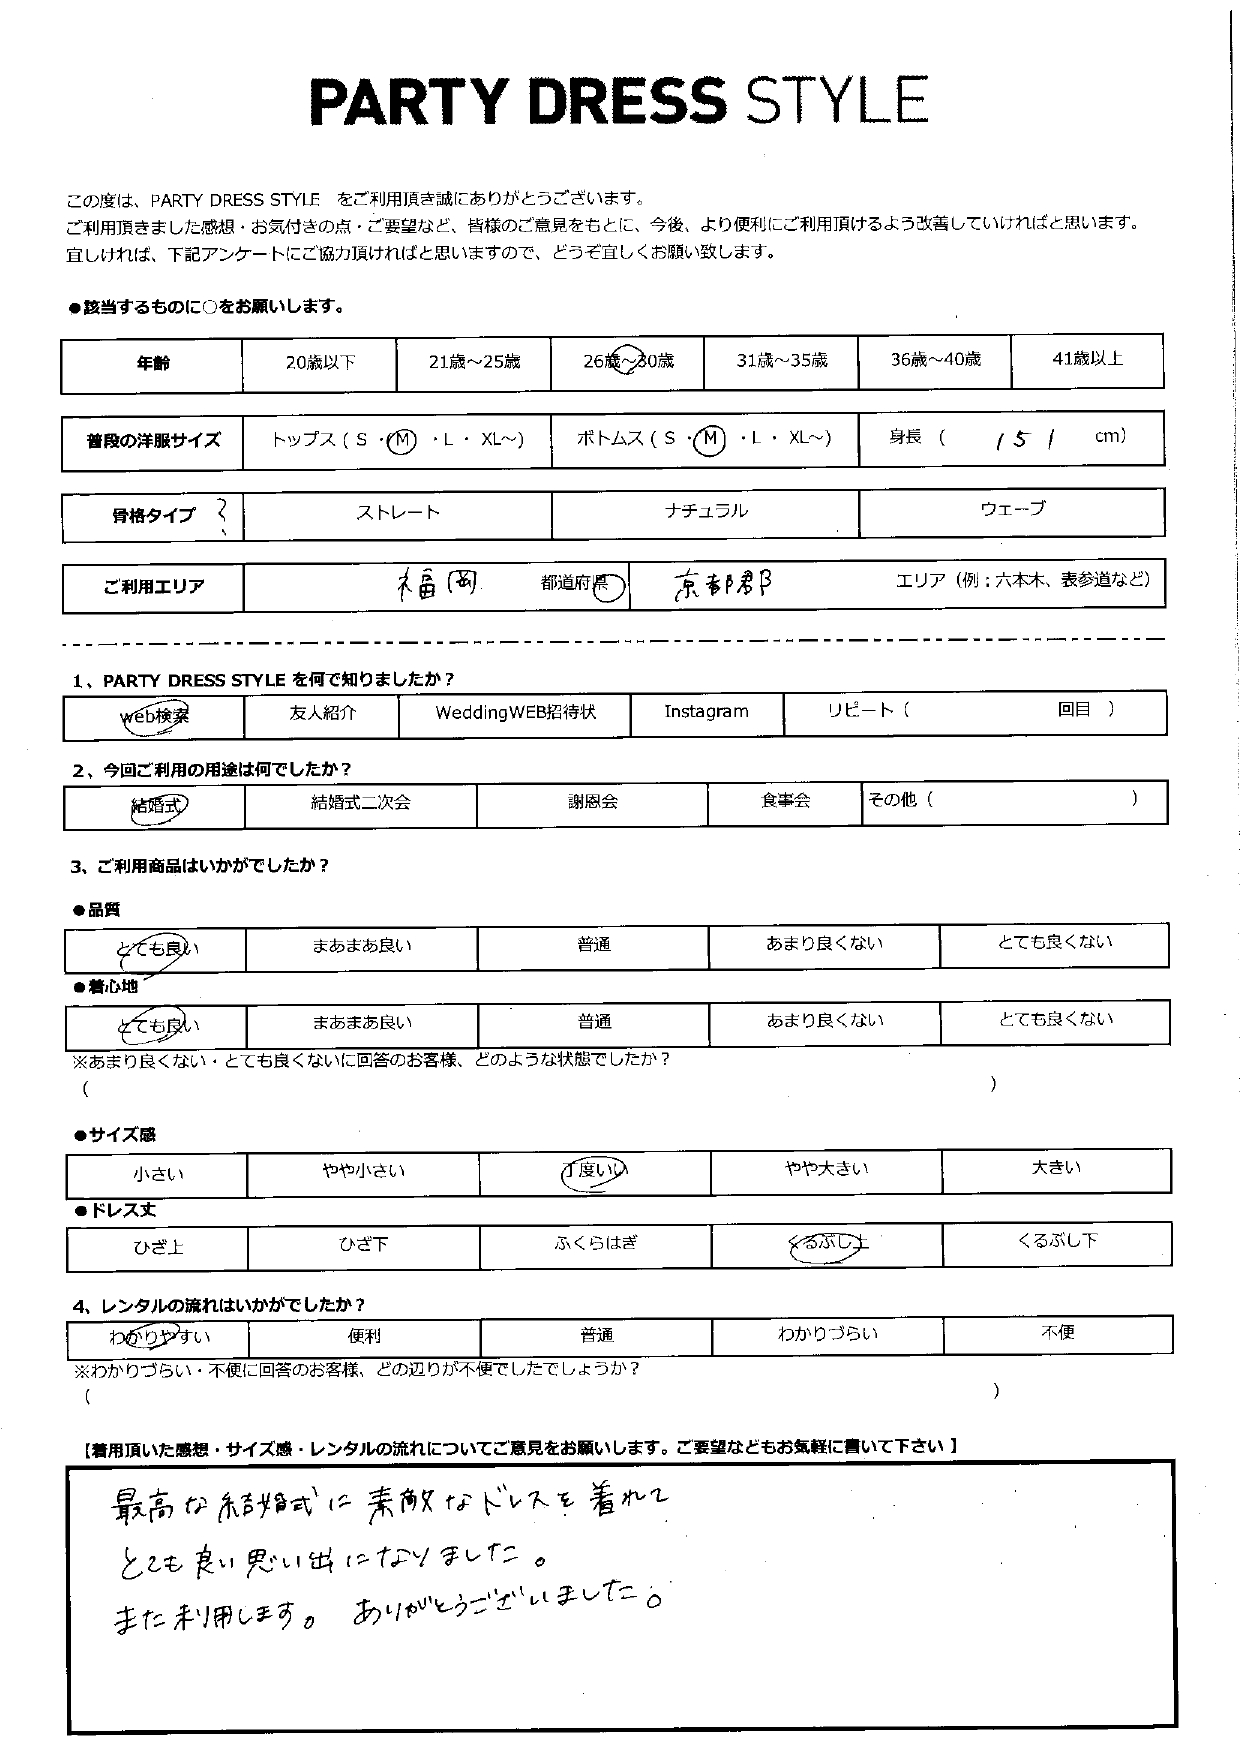 PARTY DRESS STYLE
この度は、PARTY DRESS STYLE をご利用頂き誠にありがとうございます。
ご利用頂きました感想・お気付きの点・ご要望など、皆様のご意見をもとに、今後、より便利にご利用頂けるよう改善していければと思います。
宜しければ、下記アンケートにご協力頂ければと思いますので、どうぞ宜しくお願い致します。
●該当するものに○をお願いします。
年齢 20歳以下 21歳～25歳 26歳～30歳 31歳～35歳 36歳～40歳 41歳以上
普段の洋服サイズ トップス ( S ・ M ・ L ・ XL～) ボトムス ( S ・ M ・ L ・ XL～) 身長 ( 151 cm)
骨格タイプ ? ストレート ナチュラル ウェーブ
ご利用エリア 福岡 都道府県 京都郡 エリア（例：六本木、表参道など）
1、PARTY DRESS STYLE を何で知りましたか？
web検索 友人紹介 WeddingWEB招待状 Instagram リピート ( 回目 )
2、今回ご利用の用途は何でしたか？
結婚式 結婚式二次会 謝恩会 食事会 その他 ( )
3、ご利用商品はいかがでしたか？
●品質
とても良い まあまあ良い 普通 あまり良くない とても良くない
●着心地
とても良い まあまあ良い 普通 あまり良くない とても良くない
※あまり良くない・とても良くないに回答のお客様、どのような状態でしたか？
( )
●サイズ感
小さい やや小さい 丁度いい やや大きい 大きい
●ドレス丈
ひざ上 ひざ下 ふくらはぎ くるぶし上 くるぶし下
4、レンタルの流れはいかがでしたか？
わかりやすい 便利 普通 わかりづらい 不便
※わかりづらい・不便に回答のお客様、どの辺りが不便でしたでしょうか？
( )
【着用頂いた感想・サイズ感・レンタルの流れについてご意見をお願いします。ご要望などもお気軽に書いて下さい】
最高な結婚式に素敵なドレスを着れて
とても良い思い出になりました。
また利用します。ありがとうございました。